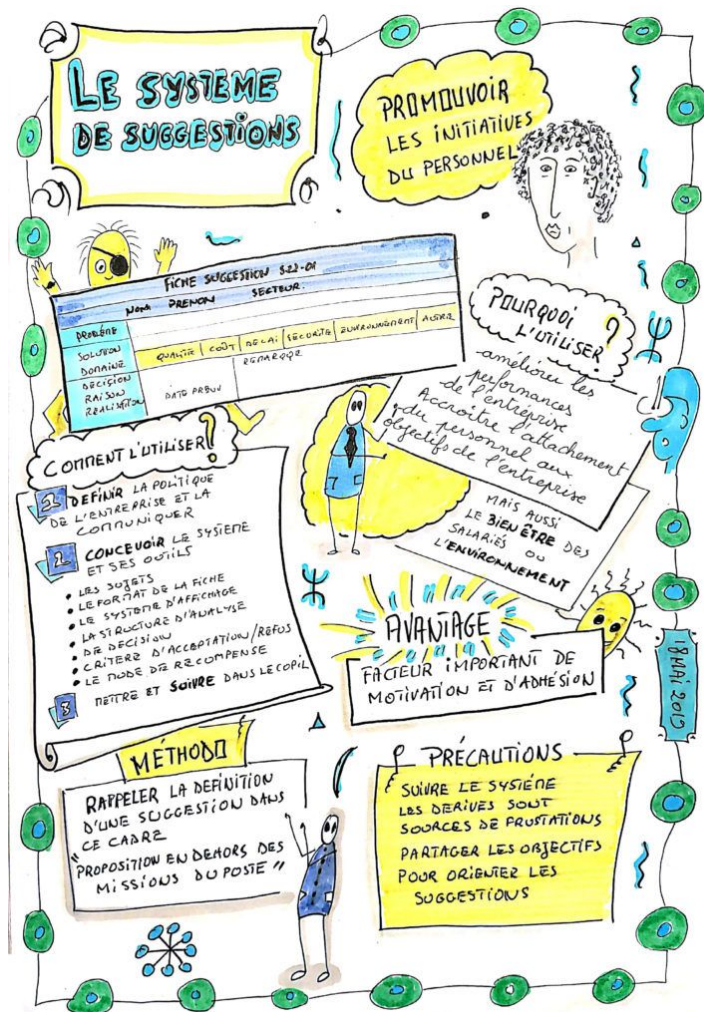 LE SYSTEME
DE SUGGESTIONS
PROMOUVOIR
LES INITIATIVES
DU PERSONNEL
FICHE SUGGESTION S22-01
NOM PRENOM SECTEUR:
PROBLÈME
SOLUTION
DOMAINE QUALITÉ COÛT DELAI SÉCURITÉ ENVIRONNEMENT AUTRE
DECISION REMARQUE
RAISON
REALISATION DATE PREVUE
POURQUOI
L'UTILISER ?
améliorer les
performances
de l'entreprise
Accroître l'attachement
du personnel aux
objectifs de l'entreprise
MAIS AUSSI
LE BIEN ÊTRE DES
SALARIÉS OU
L'ENVIRONNEMENT
COMMENT L'UTILISER ?
1 DEFINIR LA POLITIQUE
DE L'ENTREPRISE ET LA
COMMUNIQUER
2 CONCEVOIR LE SYSTEME
ET SES OUTILS
• LES SUJETS
• LE FORMAT DE LA FICHE
• LE SYSTEME D'AFFICHAGE
• LA STRUCTURE D'ANALYSE
• DE DECISION
• CRITERE D'ACCEPTATION/REFUS
• LE MODE DE RECOMPENSE
3 METTRE ET SUIVRE DANS LE COPIL
AVANTAGE
FACTEUR IMPORTANT DE
MOTIVATION ET D'ADHÉSION
18 MAI 2019
MÉTHODO
RAPPELER LA DEFINITION
D'UNE SUGGESTION DANS
CE CADRE
"PROPOSITION EN DEHORS DES
MISSIONS DU POSTE"
PRÉCAUTIONS
SUIVRE LE SYSTÉME
LES DERIVES SONT
SOURCES DE FRUSTATIONS
PARTAGER LES OBJECTIFS
POUR ORIENTER LES
SUGGESTIONS